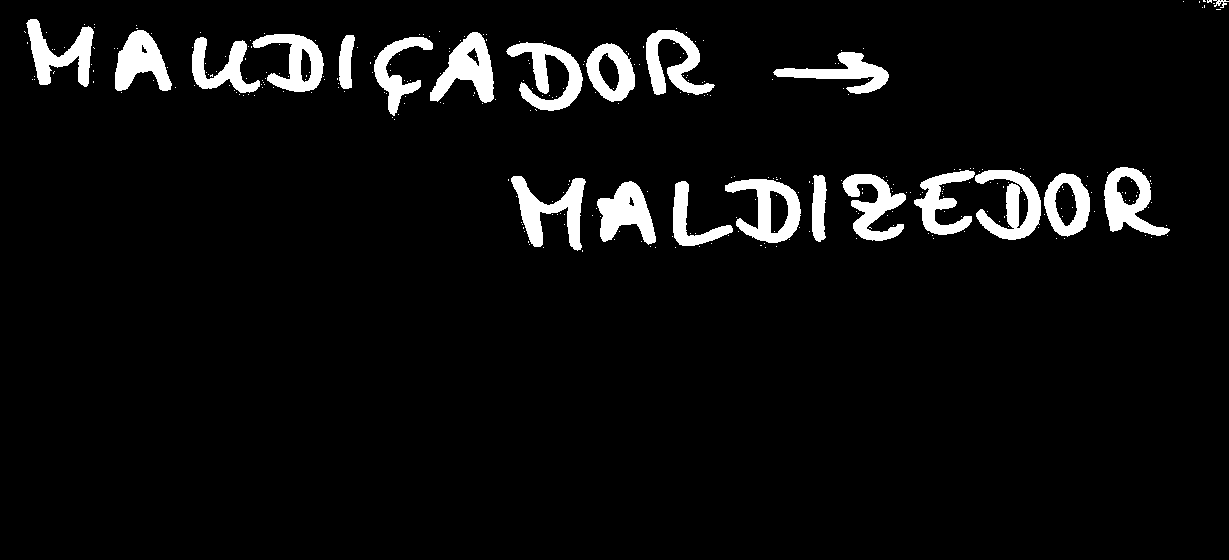 MAUDIÇADOR →
MALDIZEDOR